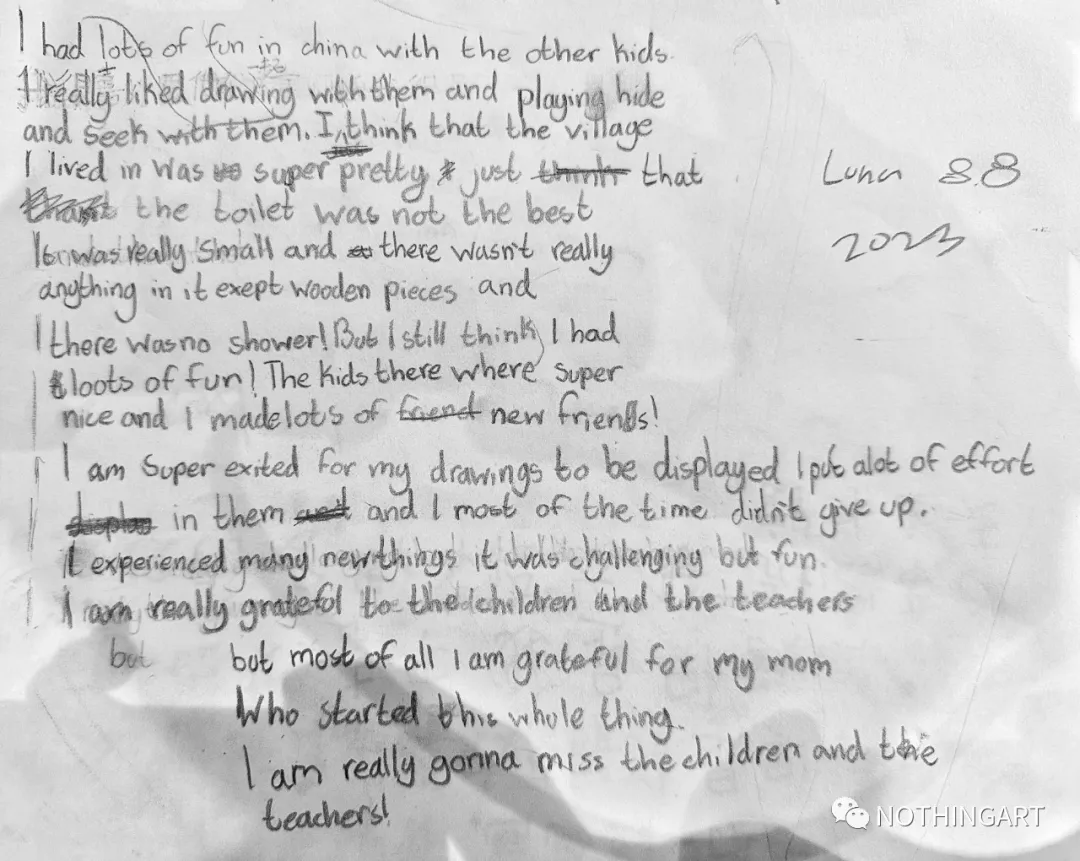 I had lots of fun in china with the other kids.
I really liked drawing with them and playing hide
and seek with them. I think that the village
I lived in was super pretty just that
the toilet was not the best
It was really small and there wasn't really
anything in it exept wooden pieces and
there was no shower! But I still think I had
loots of fun! The kids there where super
nice and I made lots of new friends!
I am super exited for my drawings to be displayed I put alot of effort
in them and I most of the time didn't give up.
I experienced many new things it was challenging but fun.
I am really grateful to the children and the teachers
but but most of all I am grateful for my mom
Who started this whole thing.
I am really gonna miss the children and the
teachers!
Luna 8.8
2023
NOTHINGART